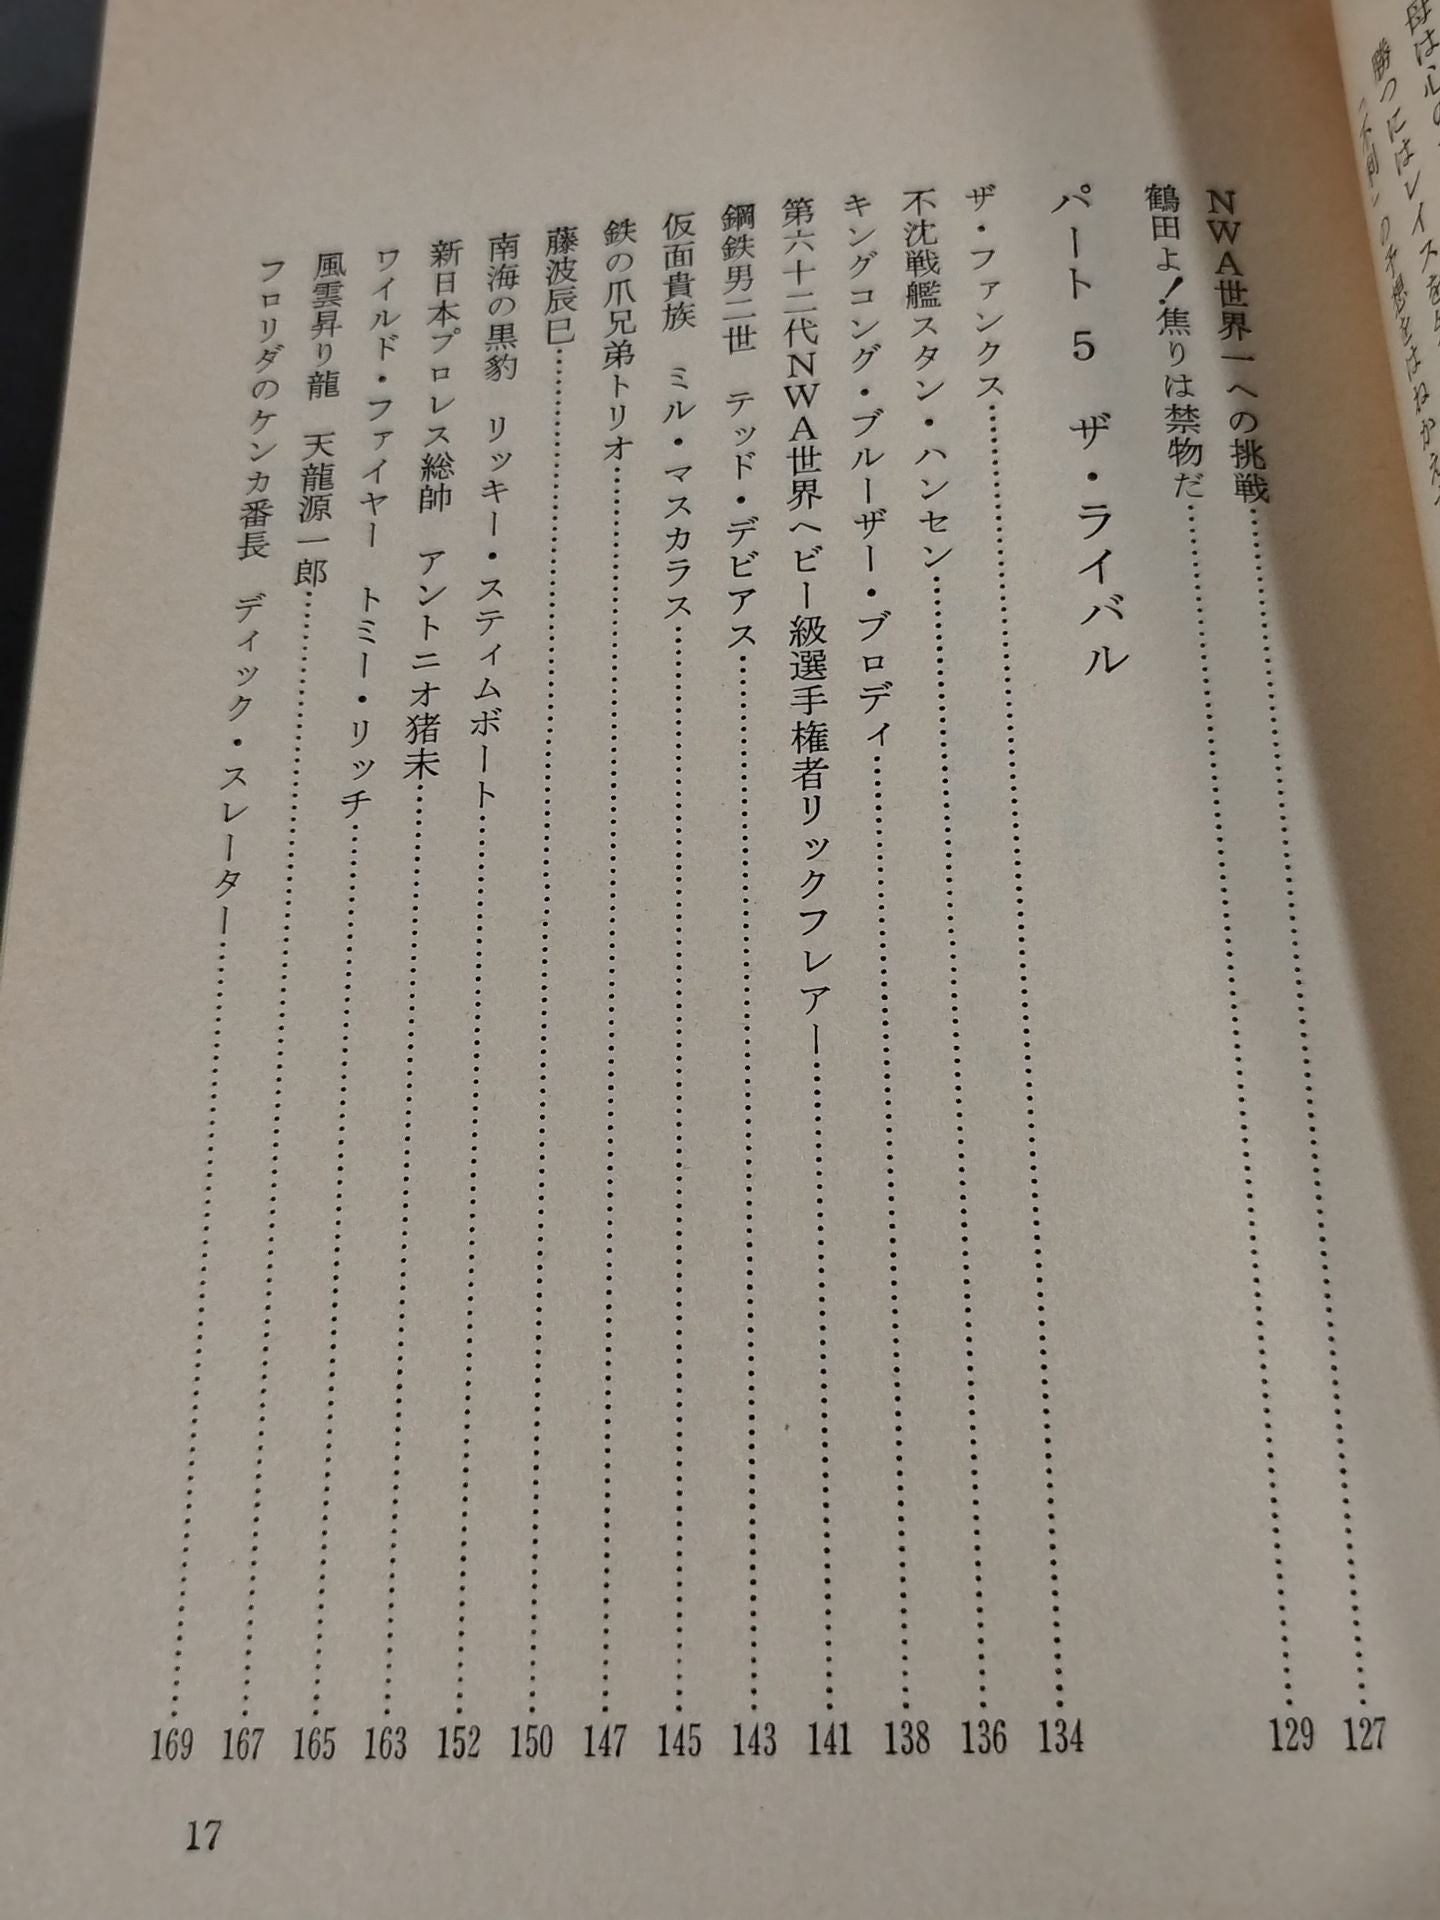 NWA世界一への挑戦……127
鶴田よ!焦りは禁物だ……129
パート5 ザ・ライバル
ザ・ファンクス……134
不沈戦艦スタン・ハンセン……136
キングコング・ブルーザー・ブロディ……138
第六十二代NWA世界ヘビー級選手権者リックフレアー……141
鋼鉄男二世 テッド・デビアス……143
仮面貴族 ミル・マスカラス……145
鉄の爪兄弟トリオ……147
藤波辰巳……150
南海の黒豹 リッキー・スティムボート……152
新日本プロレス総帥 アントニオ猪木……163
ワイルド・ファイヤー トミー・リッチ……165
風雲昇り龍 天龍源一郎……167
フロリダのケンカ番長 ディック・スレーター……169
17